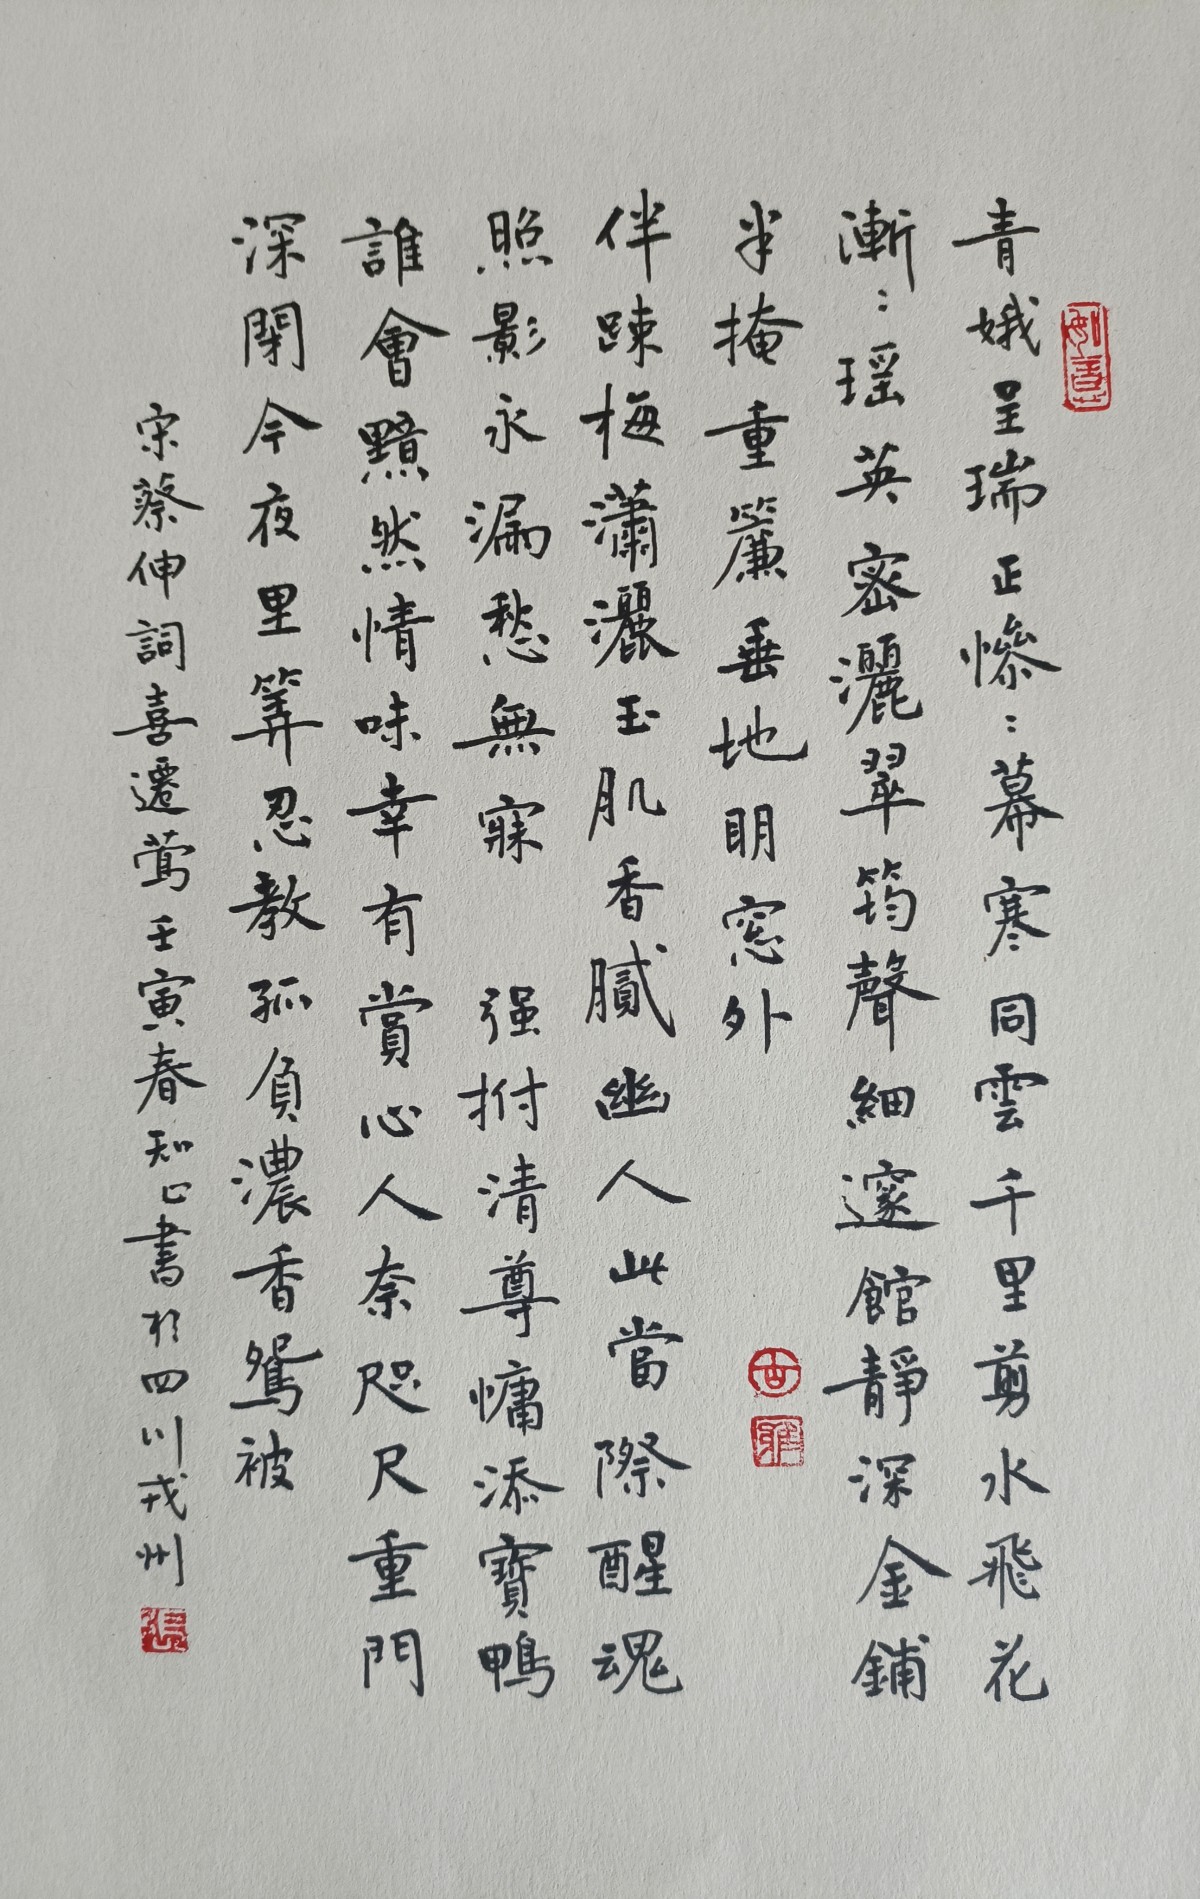 如意
青娥呈瑞正慘:幕寒同雲千里剪水飛花
漸:瑶英密灑翠筠聲細邃館靜深金鋪
半掩重簾垂地明窓外
古
雅
伴踈梅瀟灑玉肌香膩幽人此當際醒魂
照影永漏愁無寐 强拊清尊慵添寶鴨
誰會黯然情味幸有賞心人奈咫尺重門
深閉今夜里筭忍教孤負濃香鴛被
宋蔡伸詞喜遷莺壬寅春知心書於四川戎州